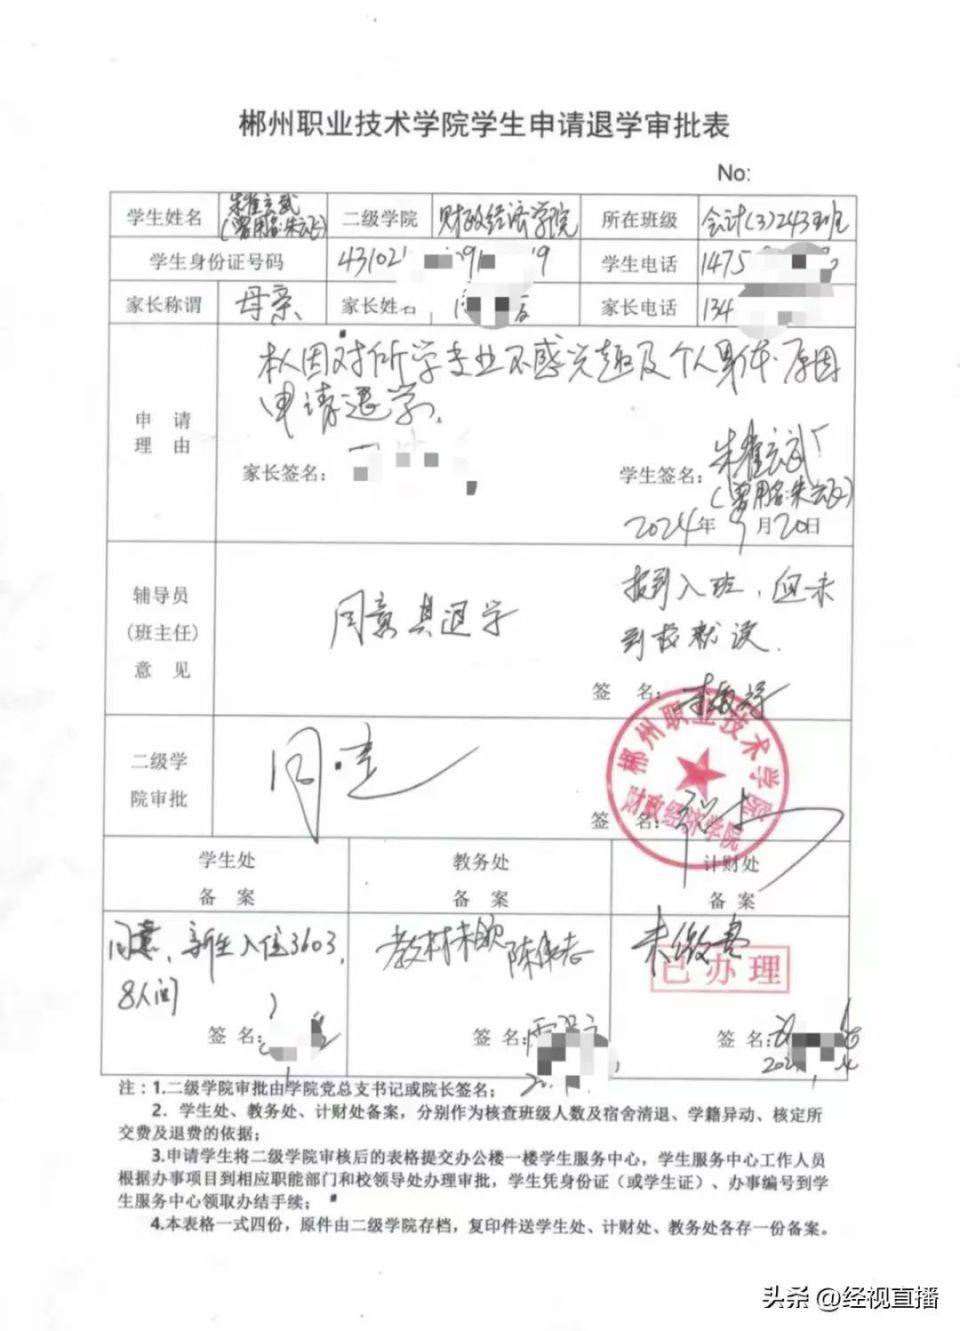 郴州职业技术学院学生申请退学审批表
No:
学生姓名 朱雀玄武 (曾用名:朱云飞) 二级学院 财政经济学院 所在班级 会计(3)243班
学生身份证号码 43102 9 9 学生电话 1475
家长称谓 母亲 家长姓名 家长电话 134
申请 理由
本人因对所学专业不感兴趣及个人身体原因
申请退学。
家长签名: 学生签名: 朱雀玄武
(曾用名:朱云飞)
2024年9月20日
辅导员 (班主任) 意见
同意其退学
报到入班,但未
到校就读.
签 名:
二级学 院审批
同意
签 名:
郴州职业技术学院
财政经济学院
学生处 教务处 计财处
备 案 备 案 备 案
同意,新生入住3603,
8人间
教材未领
未缴费
已办理
签 名: 签 名: 签 名:
注:1.二级学院审批由学院党总支书记或院长签名;
2. 学生处、教务处、计财处备案,分别作为核查班级人数及宿舍清退、学籍异动、核定所
交费及退费的依据;
3.申请学生将二级学院审核后的表格提交办公楼一楼学生服务中心,学生服务中心工作人员
根据办事项目到相应职能部门和校领导处办理审批,学生凭身份证(或学生证)、办事编号到学
生服务中心领取办结手续;
4.本表格一式四份,原件由二级学院存档,复印件送学生处、计财处、教务处各存一份备案。
头条 @经视直播